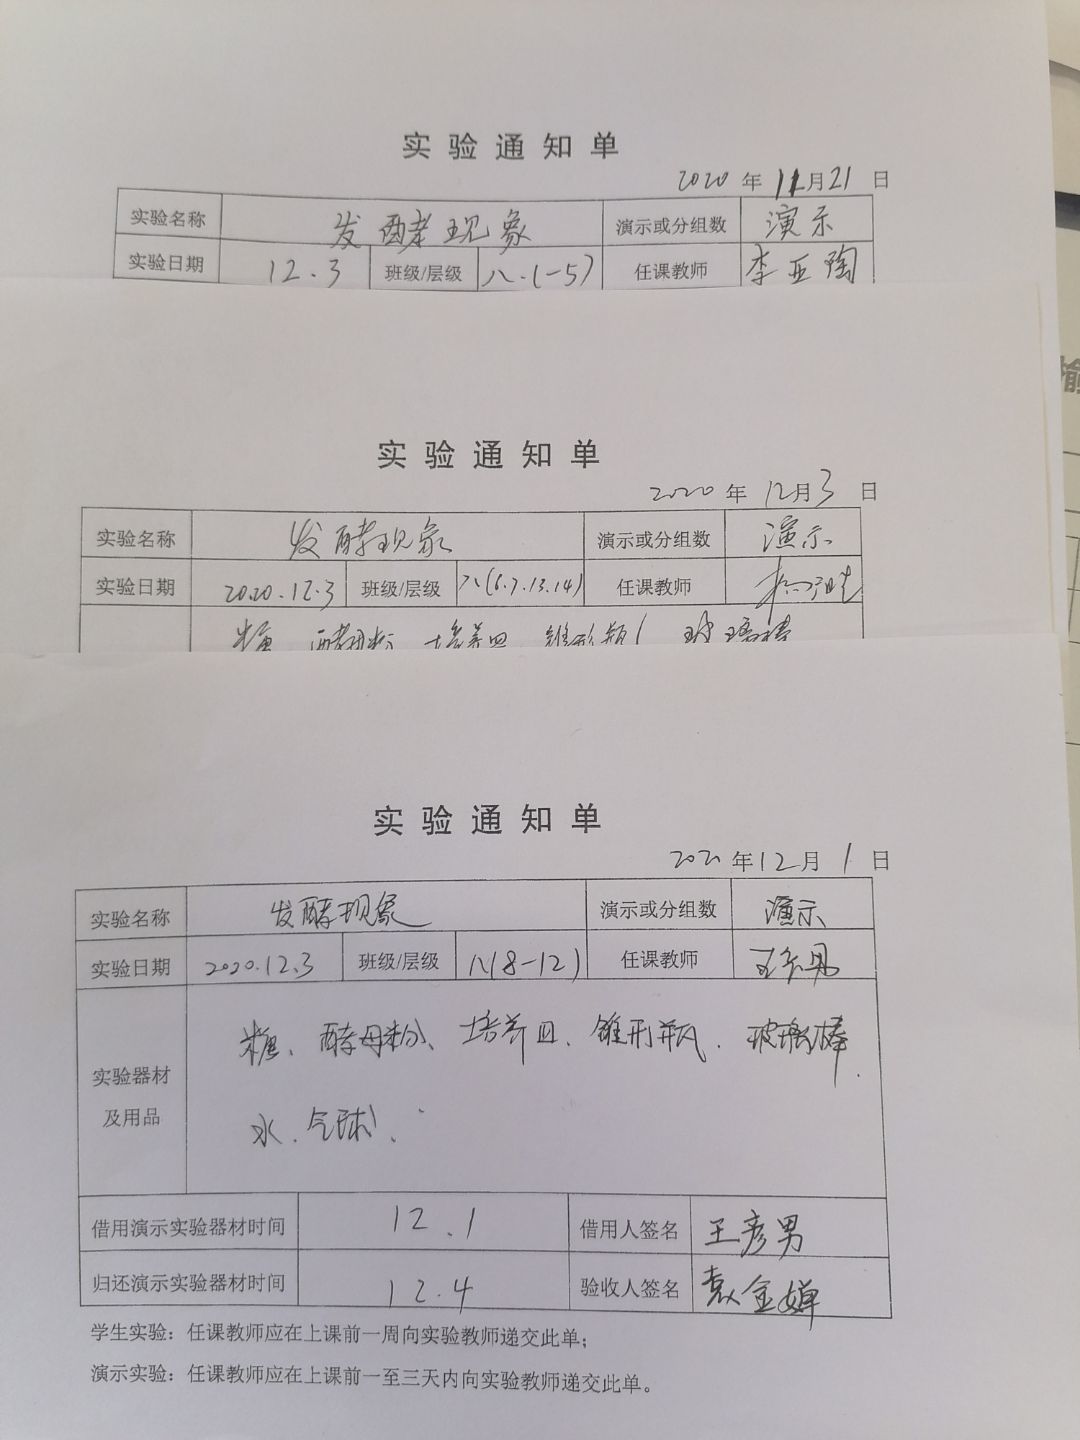 实验通知单
2020年11月21日
实验名称 发酵现象 演示或分组数 演示
实验日期 12.3 班级/层级 八.(1-5) 任课教师 李亚陶
实验通知单
2020年12月3日
实验名称 发酵现象 演示或分组数 演示
实验日期 2020.12.3 班级/层级 八(6.7.13.14) 任课教师
糖 酵母粉 培养皿 锥形瓶 玻璃棒
实验通知单
2020年12月1日
实验名称 发酵现象 演示或分组数 演示
实验日期 2020.12.3 班级/层级 八(8-12) 任课教师 王彦男
糖、酵母粉、培养皿、锥形瓶、玻璃棒、
实验器材
及用品
水、气球、
借用演示实验器材时间 12.1 借用人签名 王彦男
归还演示实验器材时间 12.4 验收人签名 袁金婵
学生实验：任课教师应在上课前一周向实验教师递交此单；
演示实验：任课教师应在上课前一至三天内向实验教师递交此单。